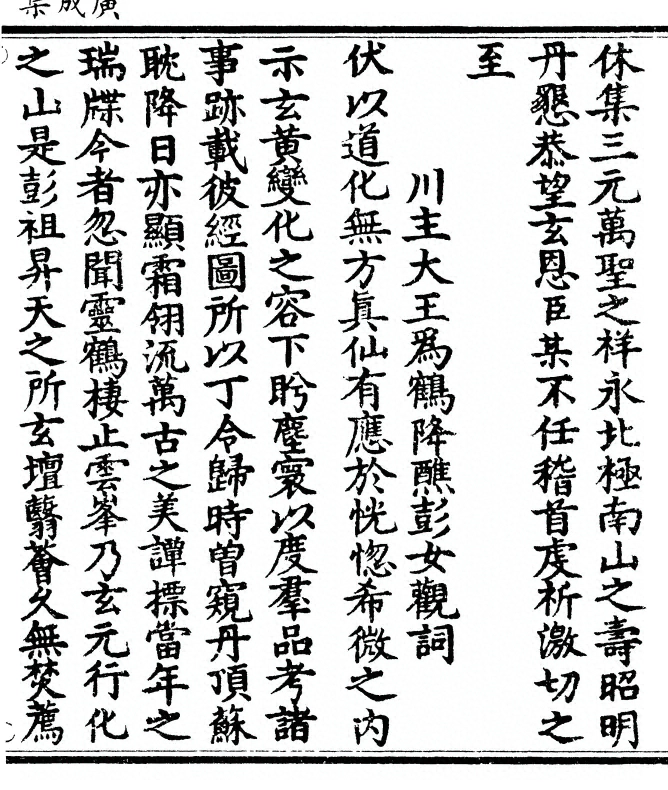 廣成集
休集三元萬聖之祥永北極南山之壽昭明
丹懇恭望玄恩臣某不任稽首虔祈激切之
至
川主大王爲鶴降醮彭女觀詞
伏以道化無方眞仙有應於恍惚希微之内
示玄黃變化之容下盻塵寰以度羣品考諸
事跡載彼經圖所以丁令歸時曽窺丹頂蘇
耽降日亦顯霜翎流萬古之美譚摽當年之
瑞牒今者忽聞靈鶴棲止雲峯乃玄元行化
之山是彭祖昇天之所玄壇翳薈久無焚薦